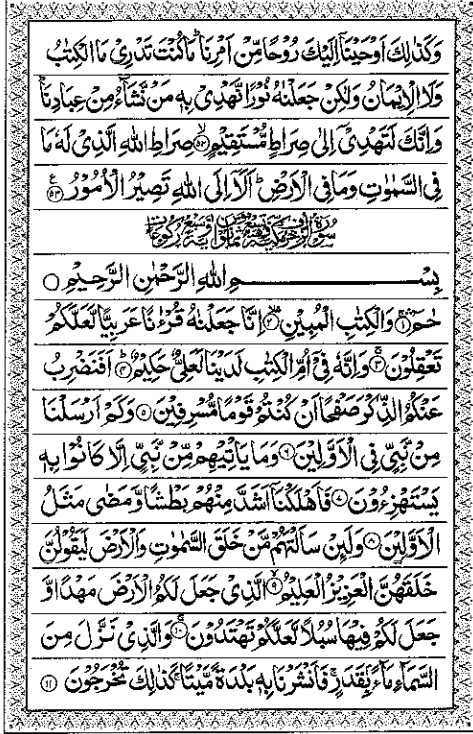 وَكَذٰلِكَ اَوْحَيْنَاۤ اِلَيْكَ رُوْحًا مِّنْ اَمْرِنَا ؕ مَا كُنْتَ تَدْرِىْ مَا الْكِتٰبُ
وَلَا الْاِيْمَانُ وَلٰكِنْ جَعَلْنٰهُ نُوْرًا نَّهْدِىْ بِهٖ مَنْ نَّشَآءُ مِنْ عِبَادِنَا ؕ
وَاِنَّكَ لَتَهْدِىْۤ اِلٰى صِرَاطٍ مُّسْتَقِيْمٍ ۙ‏﴿۵۲﴾ صِرَاطِ اللّٰهِ الَّذِىْ لَهٗ مَا
فِى السَّمٰوٰتِ وَمَا فِى الْاَرْضِ ؕ اَلَاۤ اِلَى اللّٰهِ تَصِيْرُ الْاُمُوْرُ ﴿۵۳﴾ ع
بِسْمِ اللّٰهِ الرَّحْمٰنِ الرَّحِيْمِ ○
حٰمٓ ۚ‏﴿۱﴾ وَالْكِتٰبِ الْمُبِيْنِ ۙ‏﴿۲﴾ اِنَّا جَعَلْنٰهُ قُرْءٰنًا عَرَبِيًّا لَّعَلَّكُمْ
تَعْقِلُوْنَ ۚ‏﴿۳﴾ وَاِنَّهٗ فِىْۤ اُمِّ الْكِتٰبِ لَدَيْنَا لَعَلِىٌّ حَكِيْمٌ ؕ‏﴿۴﴾ اَفَنَضْرِبُ
عَنْكُمُ الذِّكْرَ صَفْحًا اَنْ كُنْتُمْ قَوْمًا مُّسْرِفِيْنَ ﴿۵﴾ وَكَمْ اَرْسَلْنَا
مِنْ نَّبِىٍّ فِى الْاَوَّلِيْنَ ﴿۶﴾ وَمَا يَاْتِيْهِمْ مِّنْ نَّبِىٍّ اِلَّا كَانُوْا بِهٖ
يَسْتَهْزِءُوْنَ ﴿۷﴾ فَاَهْلَكْنَاۤ اَشَدَّ مِنْهُمْ بَطْشًا وَّمَضٰى مَثَلُ
الْاَوَّلِيْنَ ﴿۸﴾ وَلَئِنْ سَاَلْتَهُمْ مَّنْ خَلَقَ السَّمٰوٰتِ وَالْاَرْضَ لَيَقُوْلُنَّ
خَلَقَهُنَّ الْعَزِيْزُ الْعَلِيْمُ ۙ‏﴿۹﴾ الَّذِىْ جَعَلَ لَكُمُ الْاَرْضَ مَهْدًا وَّ
جَعَلَ لَكُمْ فِيْهَا سُبُلًا لَّعَلَّكُمْ تَهْتَدُوْنَ ۚ‏﴿۱۰﴾ وَالَّذِىْ نَزَّلَ مِنَ
السَّمَآءِ مَآءً بِۢقَدَرٍ ۚ فَاَنْشَرْنَا بِهٖ بَلْدَةً مَّيْتًا ۚ كَذٰلِكَ تُخْرَجُوْنَ ﴿۱۱﴾